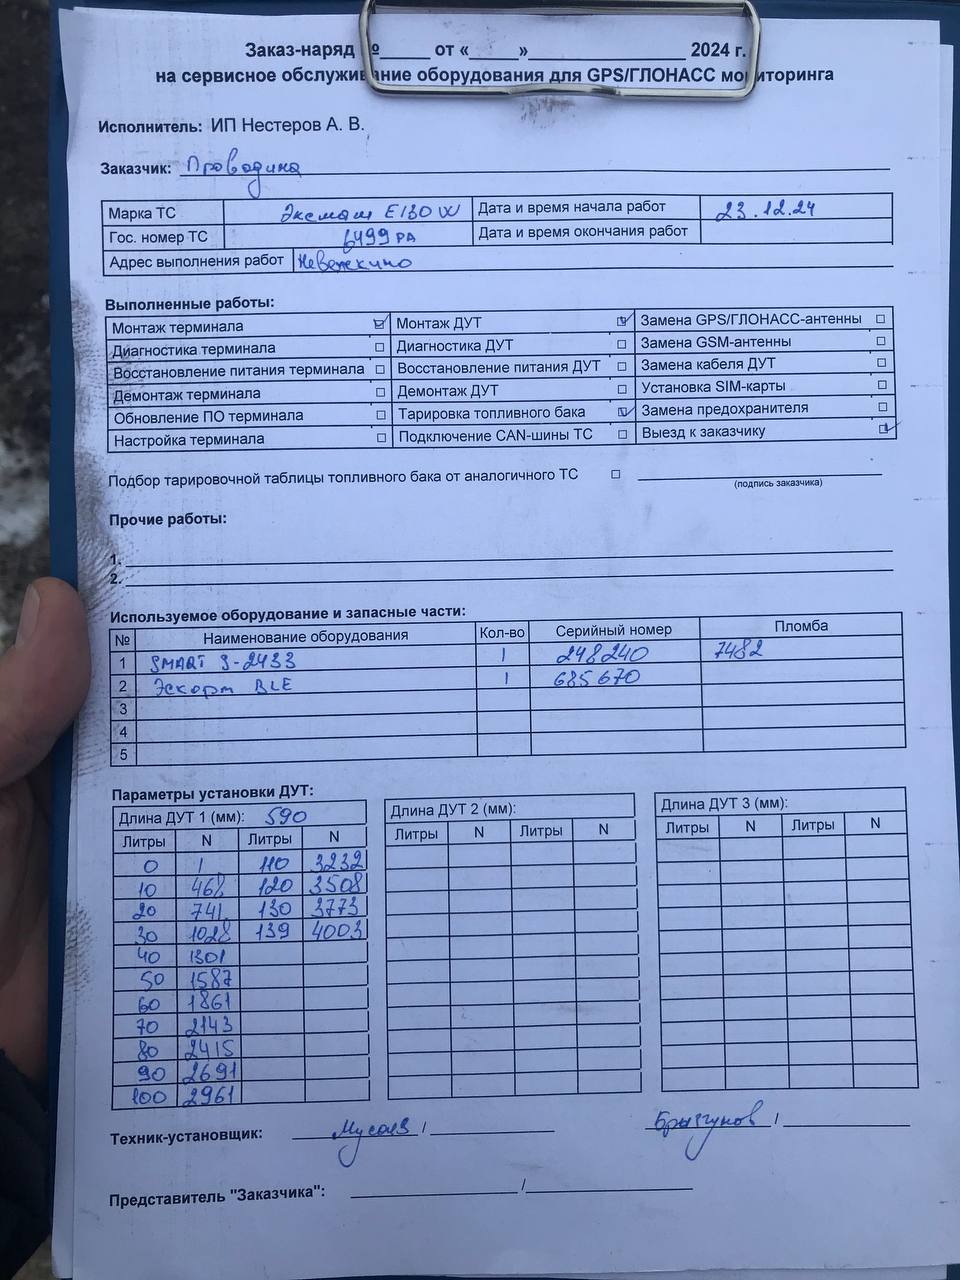 Заказ-наряд №_____ от «_____»________________ 2024 г.
на сервисное обслуживание оборудования для GPS/ГЛОНАСС мониторинга
Исполнитель: ИП Нестеров А. В.
Заказчик: Проводина
Марка ТС Эксмаш E130W Дата и время начала работ 23.12.24
Гос. номер ТС 6499 РА Дата и время окончания работ
Адрес выполнения работ Невежкино
Выполненные работы:
Монтаж терминала ☑ Монтаж ДУТ ☑ Замена GPS/ГЛОНАСС-антенны ☐
Диагностика терминала ☐ Диагностика ДУТ ☐ Замена GSM-антенны ☐
Восстановление питания терминала ☐ Восстановление питания ДУТ ☐ Замена кабеля ДУТ ☐
Демонтаж терминала ☐ Демонтаж ДУТ ☐ Установка SIM-карты ☐
Обновление ПО терминала ☐ Тарировка топливного бака ☑ Замена предохранителя ☐
Настройка терминала ☐ Подключение CAN-шины ТС ☐ Выезд к заказчику ☑
Подбор тарировочной таблицы топливного бака от аналогичного ТС ☐
(подпись заказчика)
Прочие работы:
1.
2.
Используемое оборудование и запасные части:
№ Наименование оборудования Кол-во Серийный номер Пломба
1 SMART S-2433 1 248240 7482
2 Эскорт BLE 1 685670
3
4
5
Параметры установки ДУТ:
Длина ДУТ 1 (мм): 590 Длина ДУТ 2 (мм): Длина ДУТ 3 (мм):
Литры N Литры N Литры N Литры N Литры N Литры N
0 1 110 3232
10 468 120 3508
20 741 130 3773
30 1028 139 4003
40 1301
50 1587
60 1861
70 2143
80 2415
90 2691
100 2961
Техник-установщик: Мусаев / Брызгунов /
Представитель "Заказчика": /